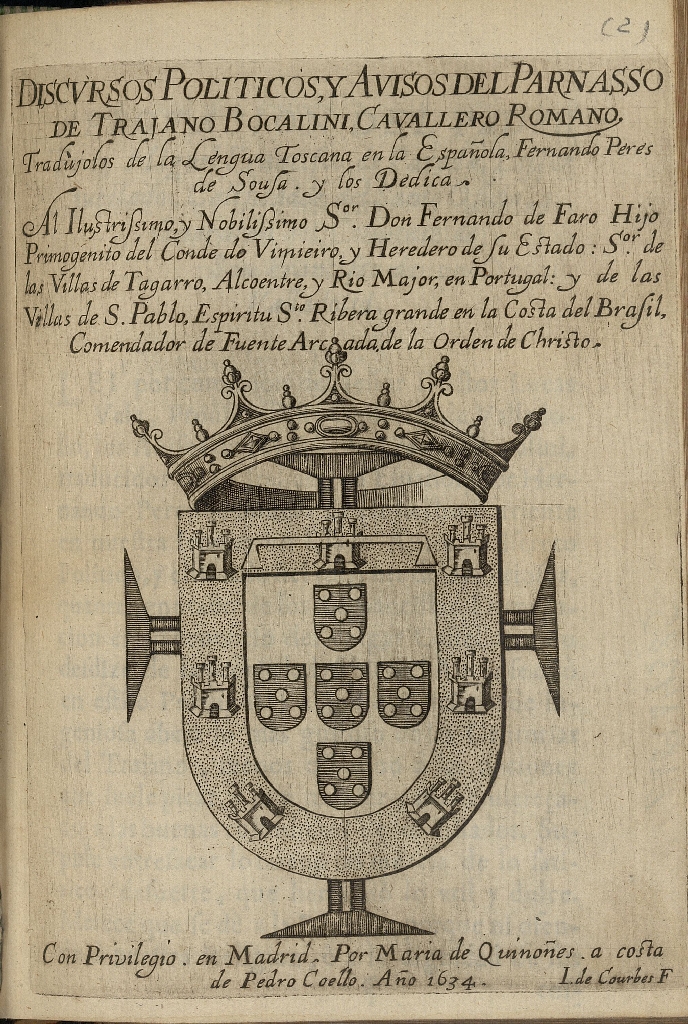 (2)
DISCVRSOS POLITICOS, Y AVISOS DEL PARNASSO
DE TRAJANO BOCALINI, CAVALLERO ROMANO.
Tradujolos de la Lengua Toscana en la Española, Fernando Peres
de Sousa. y los Dedica.
Al Ilustrissimo, y Nobilissimo Sor. Don Fernando de Faro Hijo
Primogenito del Conde do Vimieiro, y Heredero de su Estado: Sor. de
las Villas de Tagarro, Alcoentre, y Rio Major, en Portugal: y de las
Villas de S. Pablo, Espiritu Sto. Ribera grande en la Costa del Brasil,
Comendador de Fuente Arcada, de la Orden de Christo.
Con Privilegio. en Madrid. Por Maria de Quinoñes. a costa
de Pedro Coello. Año 1634.
I. de Courbes F